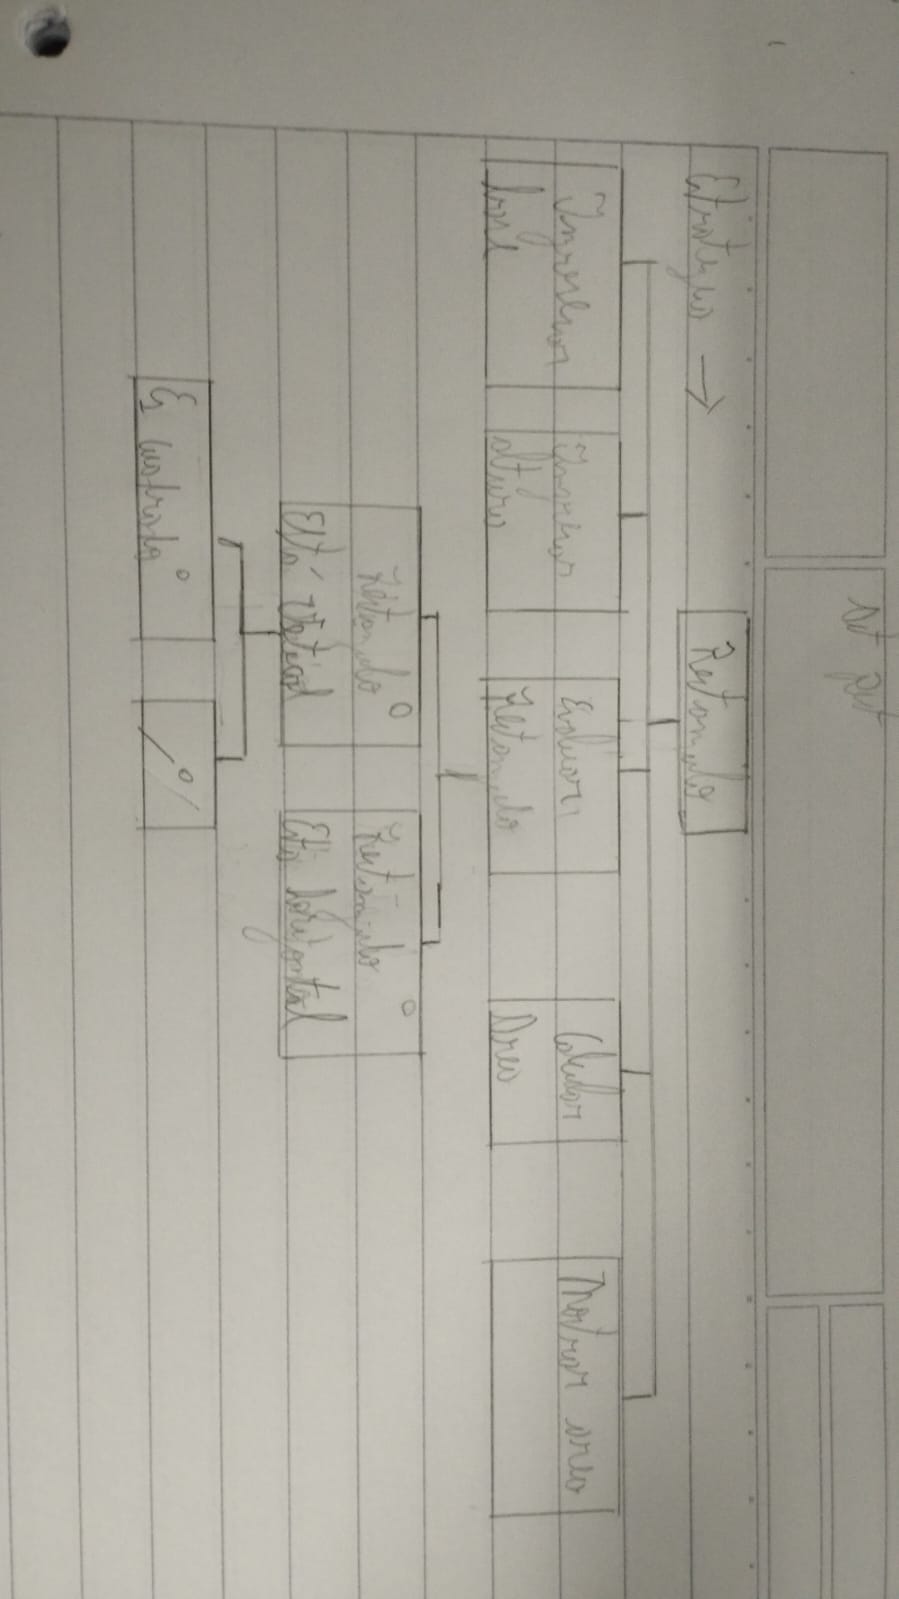 Estrategia → Rectangulo
Ingresar
base
Ingresar
altura
Evaluar
Rectangulo
Calcular
Area
Mostrar area
Rectangulo
Está Vertical
Rectangulo
Está horizontal
Es cuadrado